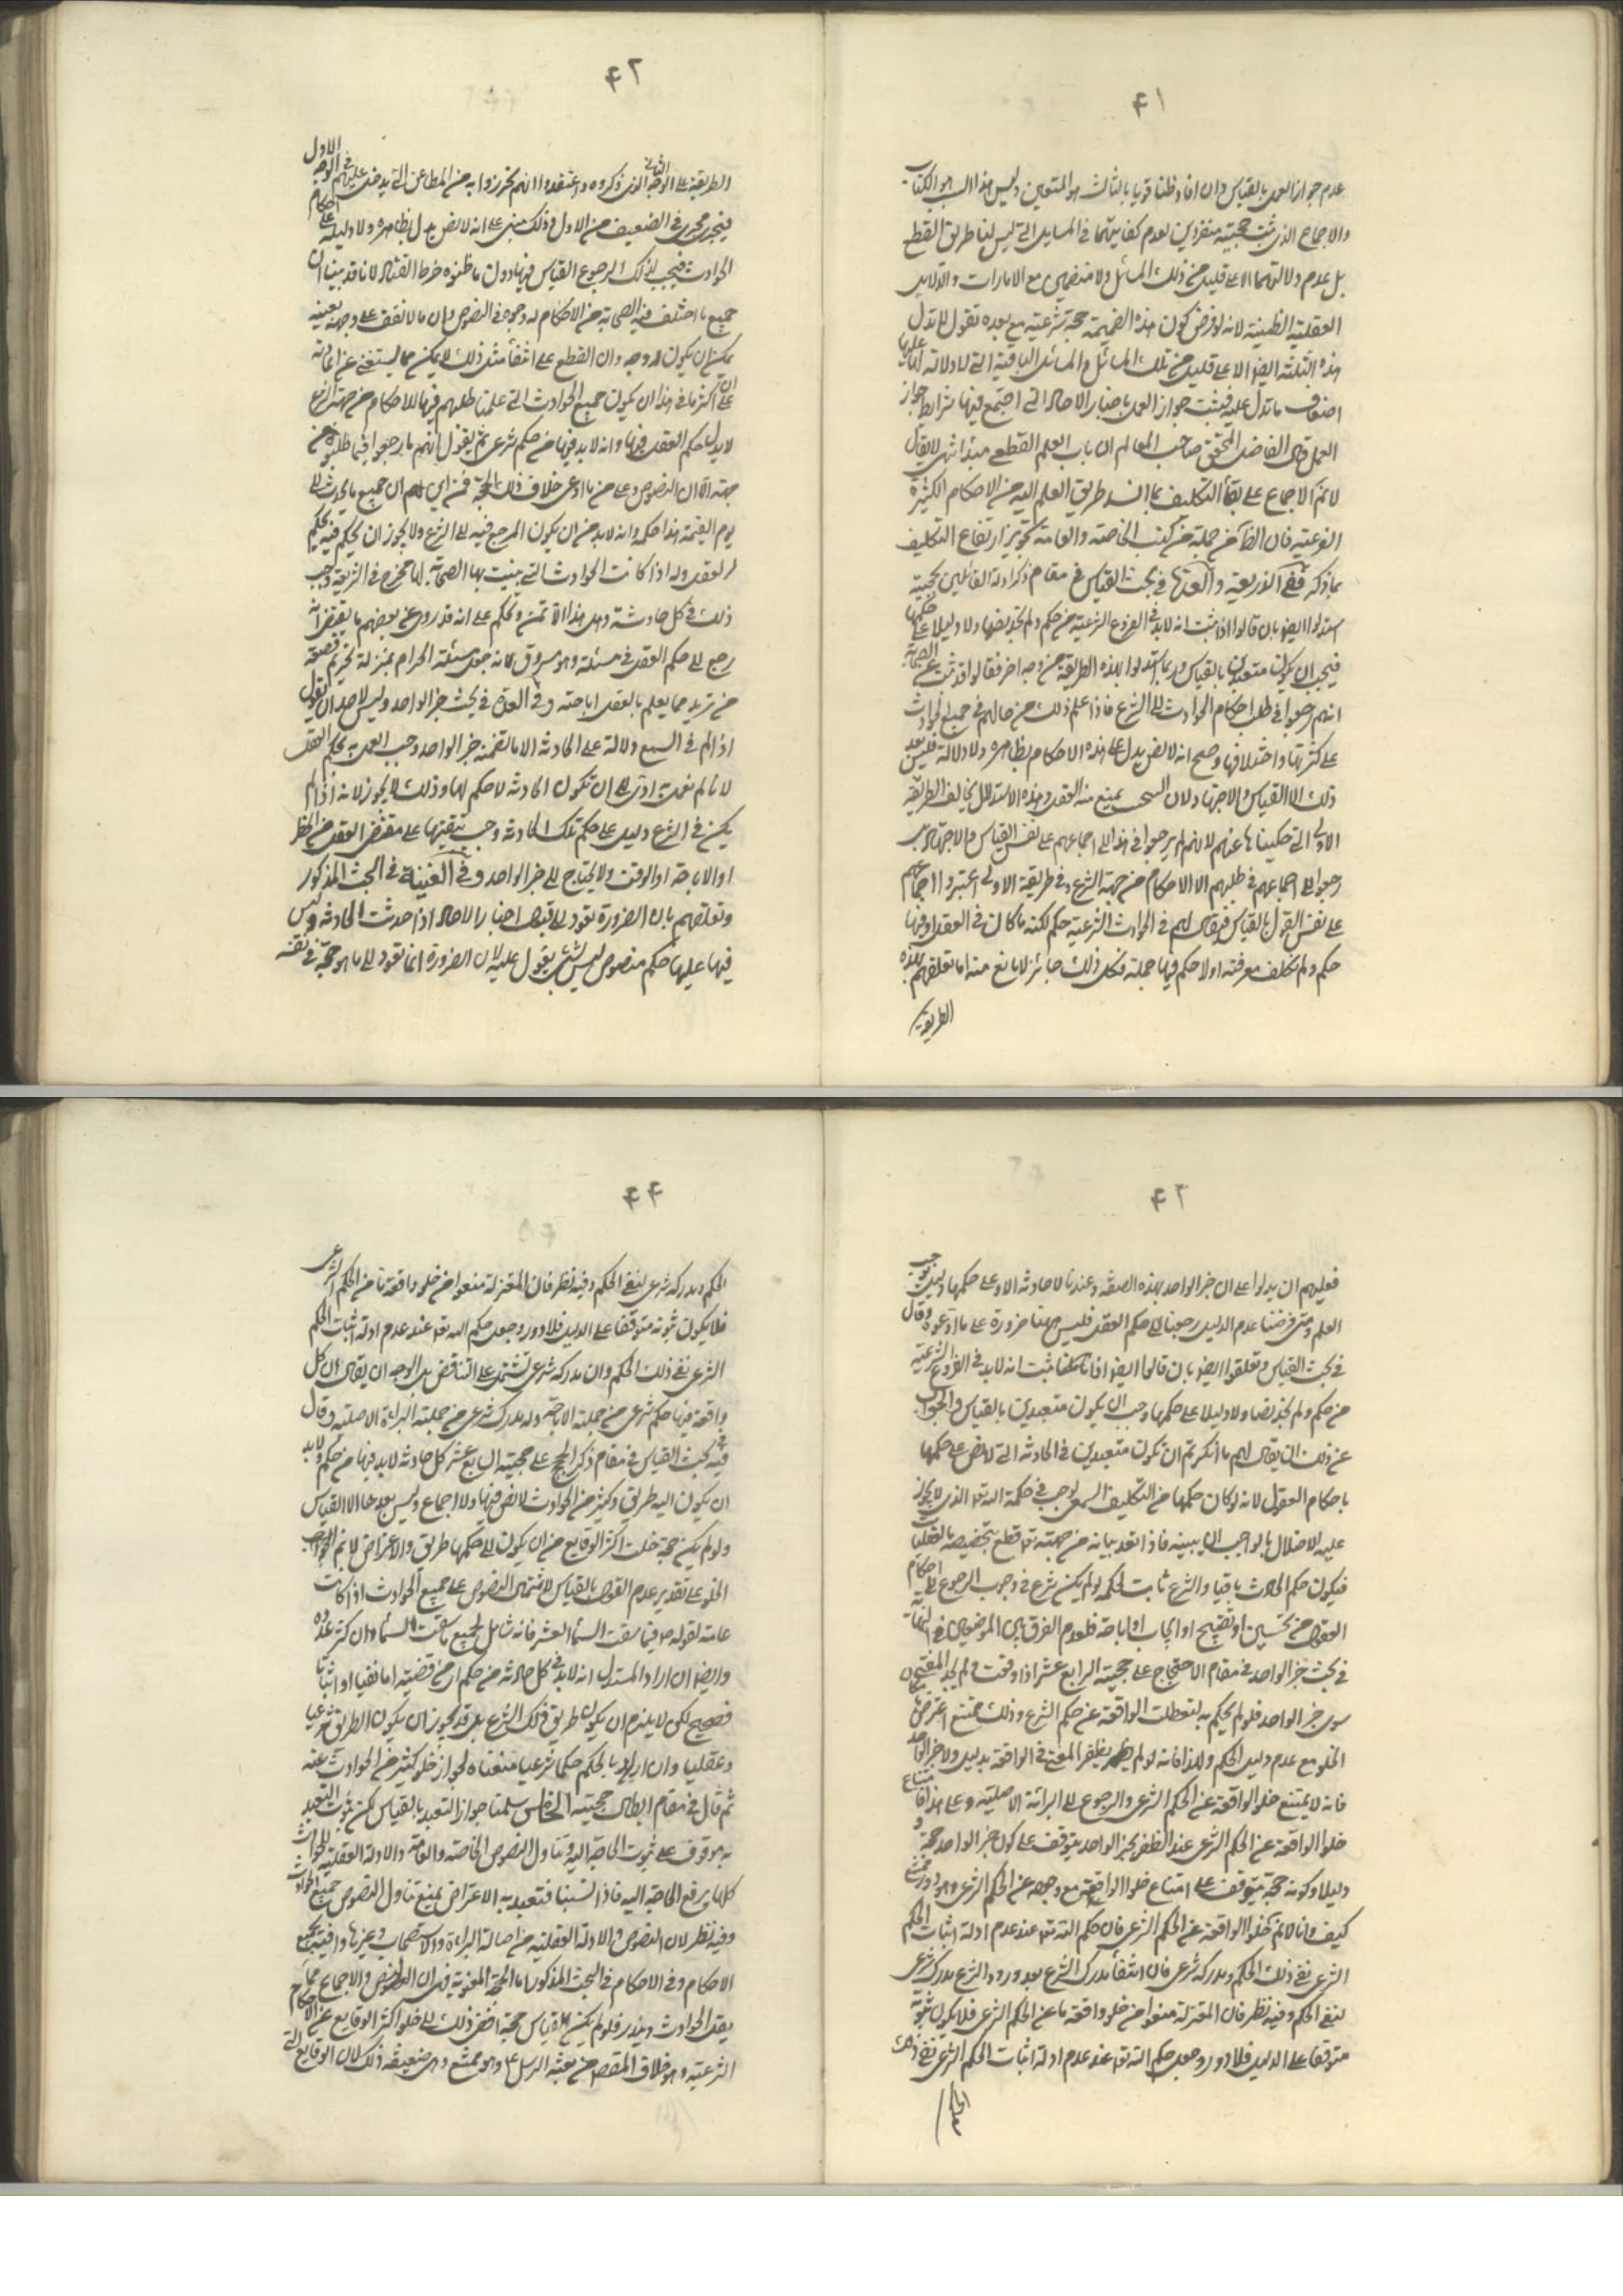 ۴۱
عدم جواز العمل بالقياس وان افاد ظنا قويا بالثالث هو المتعين وليس هذا السبب هو الكتاب
والاجماع الذى ثبت حجيته منفردين لعدم كفايتهما فى المسايل التى ليس لنا طريق القطع
بل عدم دلالتهما الا على قليل من ذلك المسائل ولا منضمين مع الامارات والدلايل
العقلية الظنية لانه لو فرض كون هذه الضميمة حجة شرعية مع بعده نقول لا تدل
هذه الثلثة ايضا الا على قليل من تلك المسائل والمسائل الباقية التى لا دلالة لها عليها
اضعاف ما تدل عليه فيثبت جواز العمل باخبار الاحاد التى اجتمع فيها شرايط جواز
العمل وقال الفاضل المحقق صاحب المعالم ان باب العلم القطعى الى انتهى لا يقال
لا نم الاجماع على بقاء التكليف بما انسد طريق العلم اليه من الاحكام الكثيرة
الفرعية فان الظاهر من جملة من كتب الخاصة والعامة تجويز ارتفاع التكليف
بما ذكر ففى الذريعة والعدة فى بحث القياس فى مقام ذكر ادلة القائلين بحجية
استدلوا ايضا بان قالوا اذا ثبت انه لابد فى الفروع الشرعية من حكم ولم نجد نصا ولا دليلا على حكمها
فيجب ان يكون متعبدين بالقياس وربما استدلوا بهذه الطريقة من وجه اخر فقالوا قد ثبت عن الصحابة
انهم رجعوا فى طلب احكام الحوادث الى الشرع فاذا علم ذلك من حالهم فى جميع الحوادث
على كثرتها واختلافها وصح انه لا نص يدل على هذه الاحكام بظاهره ولا دلالة فليس بعد
ذلك الا القياس والاجتهاد ولان السمع يمنع منه العقل وهذه الاستدلال يخالف الطريقة
الاولى التى حكيناها عنهم لانهم لم يرجعوا فى هذا الى اجماعهم على نفس القياس والاجتهاد بل
رجعوا الى اجماعهم فى طلبهم الا الاحكام من جهة الشرع وفى طريقة الاولى اعتبروا اجماعهم
على نفس القول بالقياس فيقال لهم فى الحوادث الشرعية حكم لكنه ما كان فى العقل او فيها
حكم ولم نكلف معرفته او لا حكم فيها جملة فكل ذلك جائز لا مانع منه اما تعلقهم بهذه
الطريقة
۴۲
الطريقة على الوجه الثانى الذى ذكروه واعتقدوا انهم تحرزوا به من المطاعن التى يدخل عليهم فى الوجه الاول
فيجرى مجرى فى الضعيف من الاول وذلك مبنى على انه لا نص يدل بظاهره ولا دليله على احكام
الحوادث فيجب لذلك الرجوع القياس فيها دون ما ظنوه خرط القتاد لانا قد بينا ان
جميع ما اختلف فيه الصحابة من الاحكام له وجوه فى النصوص وان ما لا نقف على وجهه بعينه
يمكن ان يكون له وجه وان القطع على انتفاء مثل ذلك لا يمكن مما يستغنى عن اعادته
على ان اكثر ما فى هذا ان يكون جميع الحوادث التى علمنا طلبهم فيها للاحكام من جهة الشرع
لا يدل حكم العقل فيها وانه لابد فيها من حكم شرعى ثم يقول بانهم ما رجعوا فيما طلبوه من
جهته الا ان النصوص وعلى من ادعى خلاف ذلك الحجة فمن اين لهم ان جميع ما يحدث الى
يوم القيمة هذا حكمه وانه لابد من ان يكون المرجع فيه الى الشرع ولا يجوز ان يحكم فيه بحكم
العقل وله اذا كانت الحوادث التى بينت بها الصحابة لها مخرج فى الشريعة وجب
ذلك فى كل حادثة وهل هذا الا تمنى وتحكم على انه قد روى عن بعضهم ما يقتضى انه
رجع الى حكم العقل فى مسئلة وهو مسروق لانه جعل مسئلة الحرام بمنزلة تحريم قصعة
من ثريد مما يعلم بالعقل اباحته وفى العدة فى بحث خبر الواحد وليس لاحد ان يقول
اذا لم فى السمع دلالة على الحادثة الا ما تضمنه خبر الواحد وجب العمل به بحكم العقل
لانا لم نعمل به ادى الى ان تكون الحادثة لا حكم لها وذلك لا يجوز لانه اذا لم
يكن فى الشرع دليل على حكم تلك الحادثة وجب تبقيتها على مقتضى العقل من الحظر
او الاباحة او الوقف ولا يحتاج الى خبر الواحد وفى الغنية فى البحث المذكور
وتعلقهم بان الضرورة تقود الى قبول اخبار الاحاد اذا حدثت الحادثة وليس
فيها عليها حكم منصوص ليس بشئ يعول عليه لان الضرورة انما تقود الى ما هو حجة فى نفسه
۴۳
فعليهم ان يدلوا على ان خبر الواحد بهذه الصفة وعندنا لا حادثة الا وعلى حكمها دليل يوجب
العلم ومتى فرضنا عدم الدليل رجعنا الى حكم العقل فليس ههنا ضرورة على ما ادعوه وقال
فى بحث القياس وتعلقوا ايضا بان قالوا ايضا اذا ثبت انه لابد فى الفروع الشرعية
من حكم ولم نجد نصا ولا دليلا على حكمها وجب ان يكون متعبدين بالقياس والجواب
عن ذلك ان يقال لهم ما انكرتم ان نكون متعبدين فى الحادثة التى لا نص على حكمها
باحكام العقول لانه لو كان حكمها من التكليف السمعى لوجب فى حكمة الله تعالى الذى لا يجوز
عليه الاخلال بالواجب ان يبينه فاذا فقد بيانه من جهته تعالى قطع بتخصيصه بالعقليات
فيكون حكم الحادث باقيا والشرع ثابت لحكمه لو لم يكن شرع فى وجوب الرجوع اليه احكام
العقول من تحسين او تقبيح او ايجاب او اباحة فلعدم الفرق بين الموضعين وفى النهاية
فى بحث خبر الواحد فى مقام الاحتجاج على حجيته الرابع عشر اذا وقعت ولم يجد المفتى
سوى خبر الواحد فلو لم يحكم به لتعطلت الواقعة عن حكم الشرع وذلك ممتنع اعترض بان
الخلو مع عدم دليل الحكم ولهذا فانه لو لم يظفر المفتى فى الواقعة بدليل ولا خبر الواحد
فانه لا يمتنع خلو الواقعة عن الحكم الشرعى والرجوع الى البرائة الاصلية وعلى هذا فامتناع
خلو الواقعة عن الحكم الشرعى عند الظفر بخبر الواحد يتوقف على كون خبر الواحد حجة و
دليلا وكونه حجة يتوقف على امتناع خلوا الواقعة مع وجوده عن الحكم الشرعى وهو دور ممتنع
كيف وانا لا نم خلو الواقعة عن الحكم الشرعى فان حكم الله تعالى عند عدم ادلة اثبات الحكم
الشرعى نفى ذلك الحكم ومدركه شرعى فان انتفاء مدرك الشرع بعد ورود الشرع مدرك شرعى
لنفى الحكم وفيه نظر فان المعتزلة منعوا من خلو واقعة ما عن الحكم الشرعى فلا يكون ثبوته
متوقفا على الدليل فلا دور وجعل حكم الله تعالى عند عدم ادلة اثبات الحكم الشرعى نفى ذلك
۴۴
الحكم ومدركه شرعى لنفى الحكم وفيه نظر فان المعتزلة منعوا من خلو واقعة ما من الحكم الشرعى
فلا يكون ثبوته متوقفا على الدليل فلا دور وجعل حكم الله تعالى عند عدم ادلة اثبات الحكم
الشرعى نفى ذلك الحكم وان مدركه شرعى تشتمل على التناقض بل الوجه ان يقال ان كل
واقعة فيها حكم شرعى من جملته الاباحة وله مدرك شرعى من جملته البراءة الاصلية وقال
فيه فى بحث القياس فى مقام ذكر الحجج على حجيته السابع عشر كل حادثة لابد فيها من حكم ولابد
ان يكون اليه طريق وكثير من الحوادث لا نص فيها ولا اجماع وليس بعدهما الا القياس
ولو لم يكن حجة خلت اكثر الوقايع من ان يكون الى حكمها طريق والاعتراض لا نم
الخلو على تقدير عدم القول بالقياس لاشتمال النصوص على جميع الحوادث اذا كانت
عامة لقوله ص فيما سقت السماء العشر فانه شامل لجميع ما سقت السماء وان كثر عدده
وايضا ان اراد المستدل انه لابد فى كل حادثة من حكم اى من قضية اما نفيا او اثباتا
فصحيح لكن لا يلزم ان يكون طريق ذلك الشرع بل قد يجوز ان يكون الطريق شرعيا
وعقليا وان اراد بالحكم حكما شرعيا منعناه لجواز خلو كثير من الحوادث عنه
ثم قال فى مقام ابطال حجيته الخامس سلمنا جواز التعبد بالقياس لكن ثبوت التعبد
به موقوف على ثبوت الحاجة اليه وتناول النصوص الخاصة والعامة والادلة العقلية للحوادث
كلها يرفع الحاجة اليه فاذا لسنا نتعبد به الاعتراض بمنع تناول النصوص جميع الحوادث
وفيه نظر لان النصوص والادلة العقلية من اصالة البراءة والاستصحاب وغيرها وافية بجميع
الاحكام وفى الاحكام فى البحث المذكور اما الحجة المعنوية فهى ان النصوص والاجماع مما
يقل الحوادث ويندر فلو لم يكن القياس حجة افضى ذلك الى خلو اكثر الوقايع عن الاحكام
الشرعية وهو خلاف المقصود من بعثة الرسل ع وهو ممتنع وهى ضعيفة ذلك لان الوقايع التى